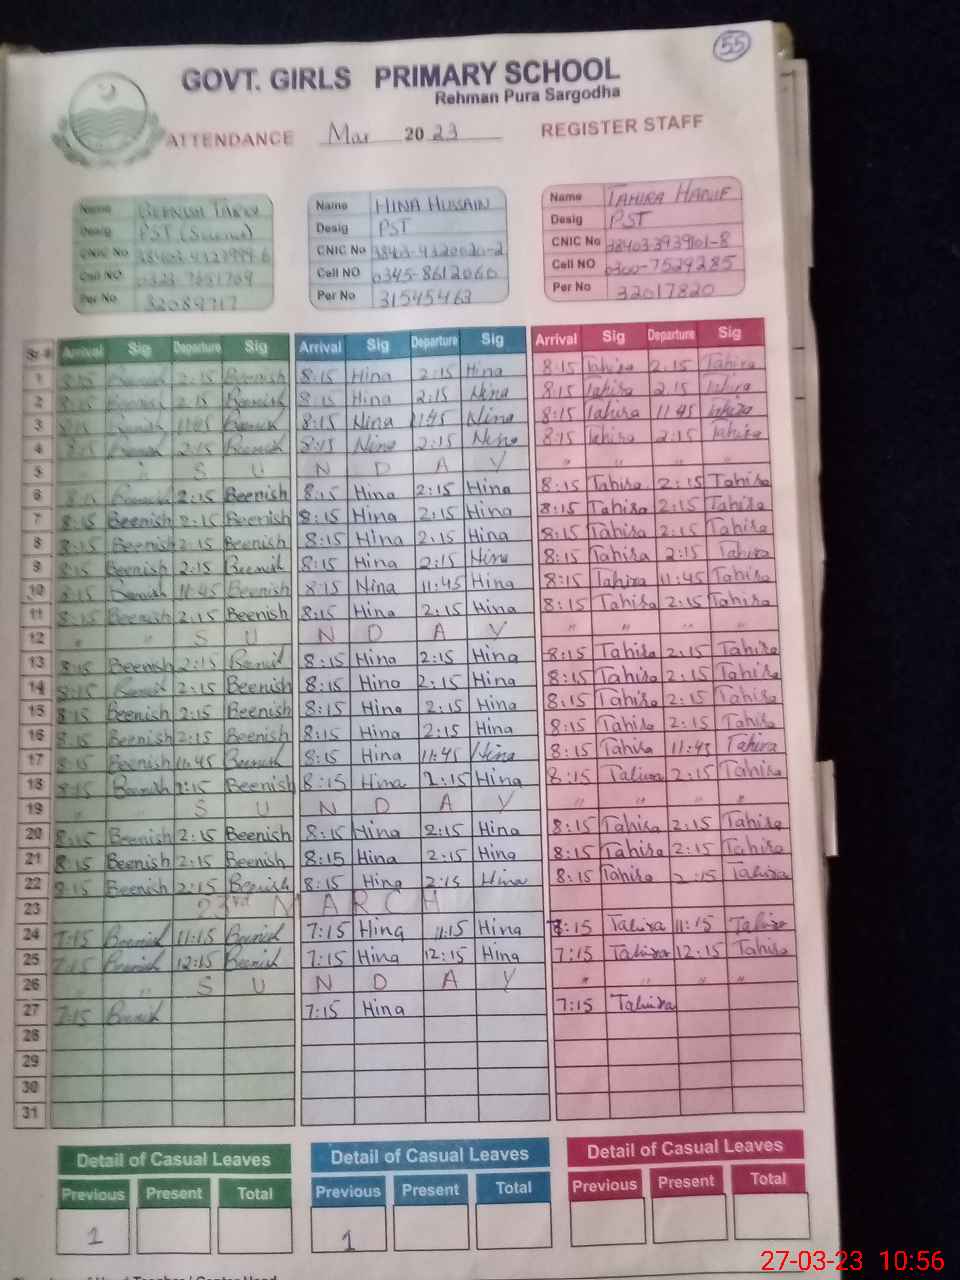 55
GOVT. GIRLS PRIMARY SCHOOL
Rehman Pura Sargodha
ATTENDANCE Mar 2023 REGISTER STAFF
Name BEENISH TARIQ Name HINA HUSSAIN Name TAHIRA HANIF
Desig PST Desig PST Desig PST
CNIC No CNIC No CNIC No 38403-3939101-8
Cell NO Cell NO 0345-8612060 Cell NO 0300-7529285
Per No 32089717 Per No 31545463 Per No 32017820
Sr # Arrival Sig Departure Sig Arrival Sig Departure Sig Arrival Sig Departure Sig
1 8:15 Beenish 2:15 Beenish 8:15 Hina 2:15 Hina 8:15 Tahira 2:15 Tahira
2 8:15 Beenish 2:15 Beenish 8:15 Hina 2:15 Hina 8:15 Tahira 2:15 Tahira
3 8:15 Beenish 11:45 Beenish 8:15 Hina 11:45 Hina 8:15 Tahira 11:45 Tahira
4 8:15 Beenish 2:15 Beenish 8:15 Hina 2:15 Hina 8:15 Tahira 2:15 Tahira
5 " " S U N D A Y " " " "
6 8:15 Beenish 2:15 Beenish 8:15 Hina 2:15 Hina 8:15 Tahira 2:15 Tahira
7 8:15 Beenish 2:15 Beenish 8:15 Hina 2:15 Hina 8:15 Tahira 2:15 Tahira
8 8:15 Beenish 2:15 Beenish 8:15 Hina 2:15 Hina 8:15 Tahira 2:15 Tahira
9 8:15 Beenish 2:15 Beenish 8:15 Hina 2:15 Hina 8:15 Tahira 2:15 Tahira
10 8:15 Beenish 11:45 Beenish 8:15 Hina 11:45 Hina 8:15 Tahira 11:45 Tahira
11 8:15 Beenish 2:15 Beenish 8:15 Hina 2:15 Hina 8:15 Tahira 2:15 Tahira
12 " " S U N D A Y " " " "
13 8:15 Beenish 2:15 Beenish 8:15 Hina 2:15 Hina 8:15 Tahira 2:15 Tahira
14 8:15 Beenish 2:15 Beenish 8:15 Hina 2:15 Hina 8:15 Tahira 2:15 Tahira
15 8:15 Beenish 2:15 Beenish 8:15 Hina 2:15 Hina 8:15 Tahira 2:15 Tahira
16 8:15 Beenish 2:15 Beenish 8:15 Hina 2:15 Hina 8:15 Tahira 2:15 Tahira
17 8:15 Beenish 11:45 Beenish 8:15 Hina 11:45 Hina 8:15 Tahira 11:45 Tahira
18 8:15 Beenish 2:15 Beenish 8:15 Hina 2:15 Hina 8:15 Tahira 2:15 Tahira
19 " " S U N D A Y " " "
20 8:15 Beenish 2:15 Beenish 8:15 Hina 2:15 Hina 8:15 Tahira 2:15 Tahira
21 8:15 Beenish 2:15 Beenish 8:15 Hina 2:15 Hina 8:15 Tahira 2:15 Tahira
22 8:15 Beenish 2:15 Beenish 8:15 Hina 2:15 Hina 8:15 Tahira 2:15 Tahira
23 23rd M A R C H
24 7:15 Beenish 11:15 Beenish 7:15 Hina 11:15 Hina 7:15 Tahira 11:15 Tahira
25 7:15 Beenish 12:15 Beenish 7:15 Hina 12:15 Hina 7:15 Tahira 12:15 Tahira
26 " " S U N D A Y " " " "
27 7:15 Beenish 7:15 Hina 7:15 Tahira
28
29
30
31
Detail of Casual Leaves Detail of Casual Leaves Detail of Casual Leaves
Previous Present Total Previous Present Total Previous Present Total
1 1
27-03-23 10:56